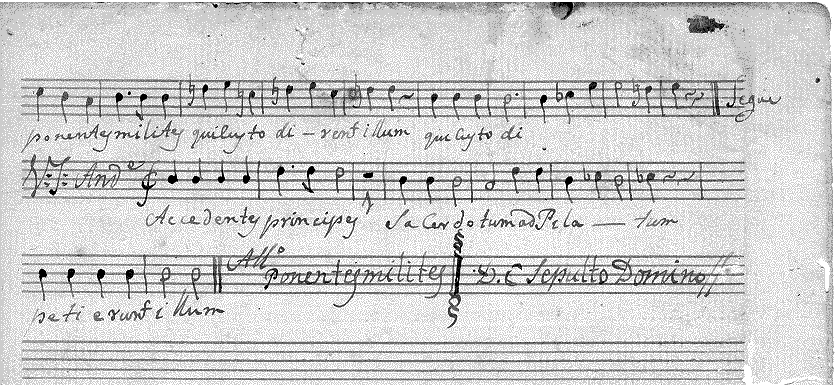 Segue
ponentes milites qui custo di - rent illum qui custo di
V. And.e
Accedentes principes Sacerdotum ad Pila — tum
All.o Ponentes milites D.C Sepulto Domino //
peti erunt illum